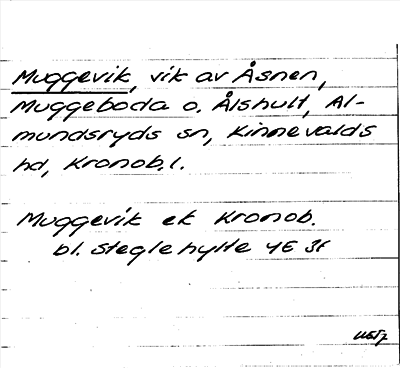 Muggevik, vik av Åsnen,
Muggeboda o. Ålshult, Al-
mundsryds sn, Kinnevalds
hd, Kronob.l.
Muggevik ek Kronob.
bl. Steglehylte 4E 3f